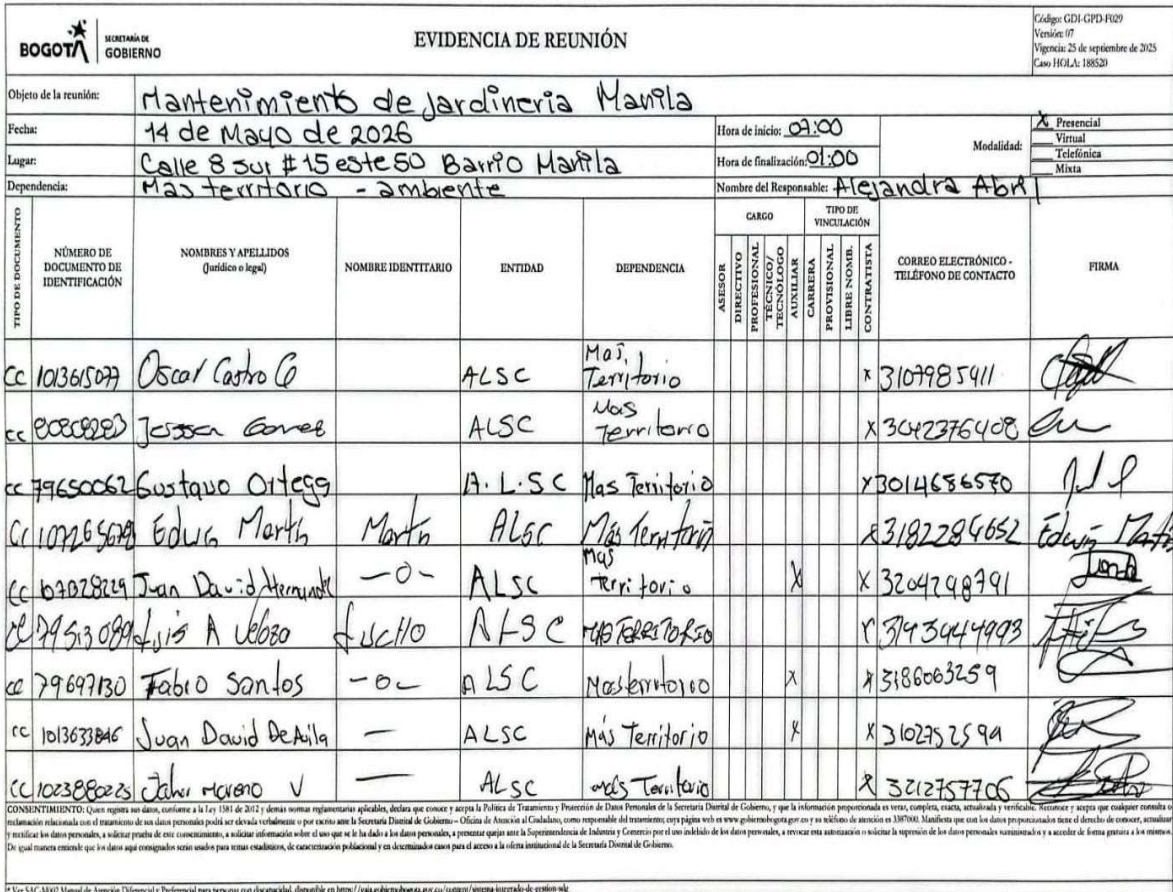 BOGOTÁ SECRETARÍA DE GOBIERNO
EVIDENCIA DE REUNIÓN
Código: GDI-GPD-F029
Versión: 07
Vigencia: 25 de septiembre de 2025
Caso HOLA: 188520
Objeto de la reunión: Mantenimiento de jardineria Manila
Fecha: 14 de Mayo de 2026
Hora de inicio: 07:00
Lugar: Calle 8 sur #15 este 50 Barrio Manila
Hora de finalización: 01:00
Modalidad: X Presencial
Virtual
Telefónica
Mixta
Dependencia: Mas territorio - ambiente
Nombre del Responsable: Alejandra Abril
TIPO DE DOCUMENTO NÚMERO DE DOCUMENTO DE IDENTIFICACIÓN NOMBRES Y APELLIDOS (Jurídico o legal) NOMBRE IDENTITARIO ENTIDAD DEPENDENCIA CARGO TIPO DE VINCULACIÓN CORREO ELECTRÓNICO - TELÉFONO DE CONTACTO FIRMA
ASESOR DIRECTIVO PROFESIONAL TÉCNICO/TECNÓLOGO AUXILIAR CARRERA PROVISIONAL LIBRE NOMB. CONTRATISTA
CC 1013615077 Oscar Castro G ALSC Mas Territorio X 3107985911
cc ALSC Mas Territorio X 3042376408
cc 79650062 Gustavo Ortega A.L.S.C Mas Territorio X 3014686570
CC Edwin Martin Martin ALSC Más Territorio X 3182284652 Edwin
CC Juan David Hernandez -0- ALSC Mas territorio X X 3204298791
CC 79513089 Luis A Veloza Lucho ALSC MAS TERRITORIO X
cc 79697130 Fabio Santos -0- ALSC Mas territorio X X 3186063259
CC 1013633846 Juan David De Avila — ALSC Más Territorio X X 3102752599
CC 1023880225 Moreno V — ALSC más Territorio X 3212757706
CONSENTIMIENTO: Quien registra sus datos, conforme a la Ley 1581 de 2012 y demás normas reglamentarias aplicables, declara que conoce y acepta la Política de Tratamiento y Protección de Datos Personales de la Secretaría Distrital de Gobierno, y que la información proporcionada es veraz, completa, exacta, actualizada y verificable. Reconoce y acepta que cualquier consulta o
reclamación relacionada con el tratamiento de sus datos personales podrá ser elevada verbalmente o por escrito ante la Secretaría Distrital de Gobierno – Oficina de Atención al Ciudadano, como responsable del tratamiento, cuya página web es www.gobiernobogota.gov.co y su teléfono de atención es 3387000. Manifiesta que con los datos proporcionados tiene el derecho de conocer, actualizar
y rectificar los datos personales, a solicitar prueba de este consentimiento, a solicitar información sobre el uso que se le ha dado a los datos personales, a presentar quejas ante la Superintendencia de Industria y Comercio por el uso indebido de los datos personales, a revocar esta autorización o solicitar la supresión de los datos personales suministrados y a acceder de forma gratuita a los mismos.
De igual manera entiende que los datos aquí consignados serán usados para temas estadísticos, de caracterización poblacional y en determinados casos para el acceso a la oferta institucional de la Secretaría Distrital de Gobierno.
* Ver SAC-M002 Manual de Atención Diferencial y Preferencial para personas con discapacidad, disponible en